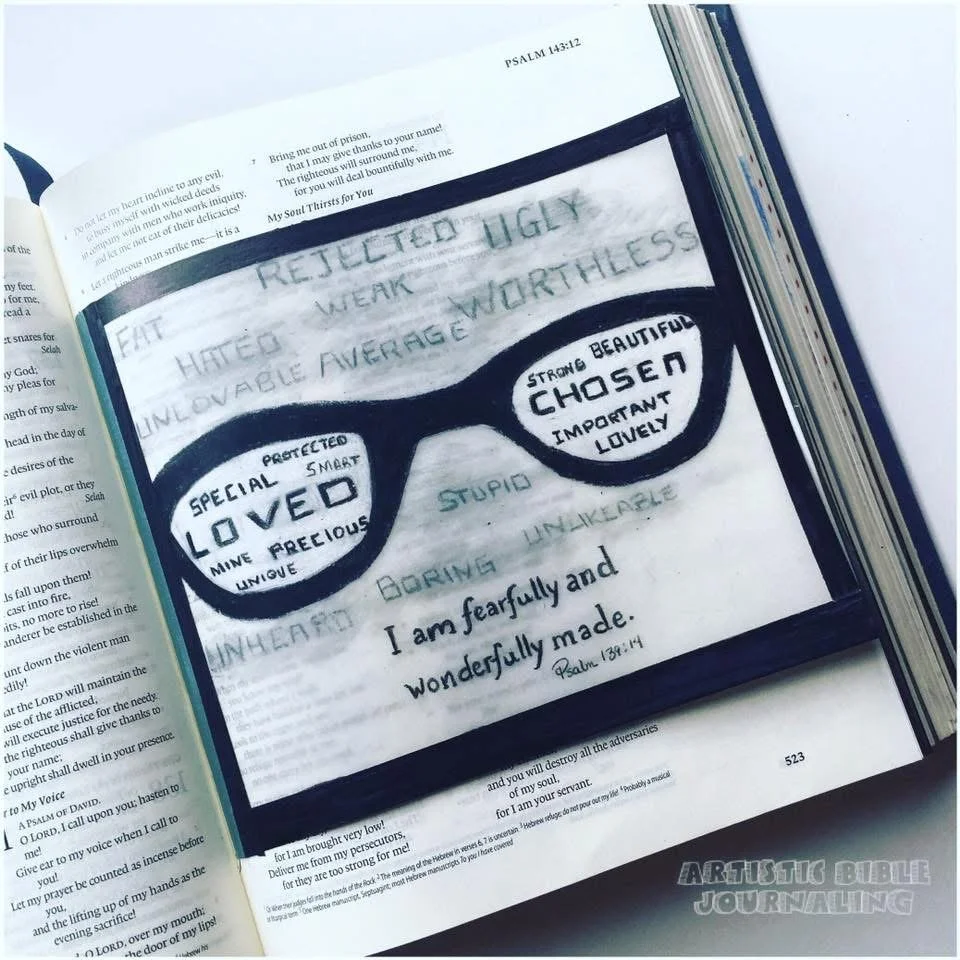 PSALM 143:12
of the
my feet,
for me,
read a
et snares for
Selah
y God;
y pleas for
ngth of my salva-
head in the day of
e desires of the
evil plot, or they
d!
Selah
hose who surround
f of their lips overwhelm
ls fall upon them!
cast into fire,
its, no more to rise!
anderer be established in the
unt down the violent man
edily!
at the LORD will maintain the
use of the afflicted,
will execute justice for the needy.
the righteous shall give thanks to
your name;
e upright shall dwell in your presence.
r to My Voice
A PSALM OF DAVID.
O LORD, I call upon you; hasten to
me!
Give ear to my voice when I call to
you!
Let my prayer be counted as incense before
you,
and the lifting up of my hands as the
evening sacrifice!
O LORD, over my mouth;
the door of my lips!
4 Do not let my heart incline to any evil,
to busy myself with wicked deeds
in company with men who work iniquity,
and let me not eat of their delicacies!
5 Let a righteous man strike me—it is a
7 Bring me out of prison,
that I may give thanks to your name!
The righteous will surround me,
for you will deal bountifully with me.
My Soul Thirsts for You
REJECTED UGLY
FAT WEAK WORTHLESS
HATED AVERAGE
UNLOVABLE
STRONG BEAUTIFUL
CHOSEN
IMPORTANT
LOVELY
PROTECTED
SPECIAL SMART
LOVED
MINE PRECIOUS
UNIQUE
STUPID
UNLIKEABLE
BORING
UNHEARD
I am fearfully and
wonderfully made.
Psalm 139:14
for I am brought very low!
Deliver me from my persecutors,
for they are too strong for me!
and you will destroy all the adversaries
of my soul,
for I am your servant.
Or When their judges fall into the hands of the Rock 2 The meaning of the Hebrew in verses 6, 7 is uncertain 3 Hebrew refuge; do not pour out my life! 4 Probably a musical
or liturgical term 5 One Hebrew manuscript, Septuagint; most Hebrew manuscripts To you I have covered
523
ARTISTIC BIBLE
JOURNALING